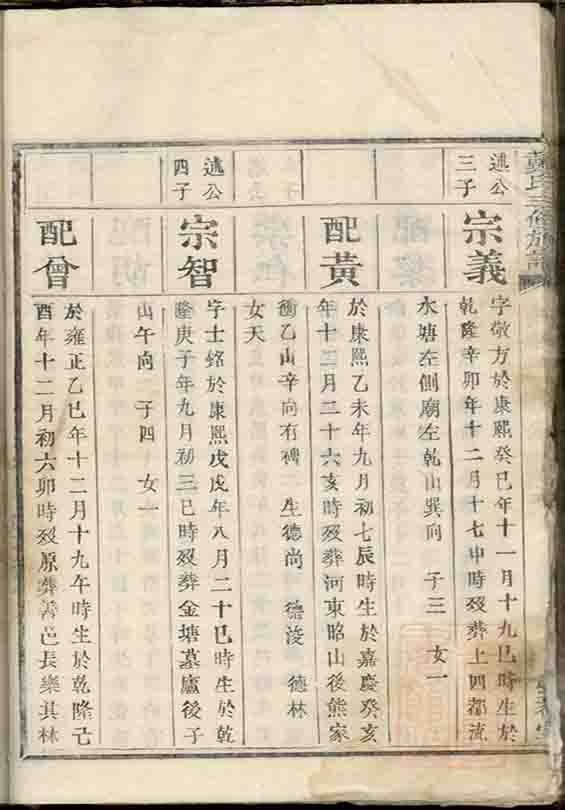 述公
三子
宗義
字敬方於康熙癸巳年十一月十九巳時生於
乾隆辛卯年十二月十七申時歿葬上四都流
水塘左側廟左乾山巽向 子三 女一
配黃
於康熙乙未年九月初七辰時生於嘉慶癸亥
年十二月二十六亥時歿葬河東昭山後熊家
衝乙山辛向有碑 生德尚 德浚 德林
女夭
述公
四子
宗智
字士銘於康熙戊戌年八月二十巳時生於乾
隆庚子年九月初三巳時歿葬金塘墓廬後子
山午向 子四 女一
配曾
於雍正乙巳年十二月十九午時生於乾隆己
酉年十二月初六卯時歿原葬善邑長樂其林